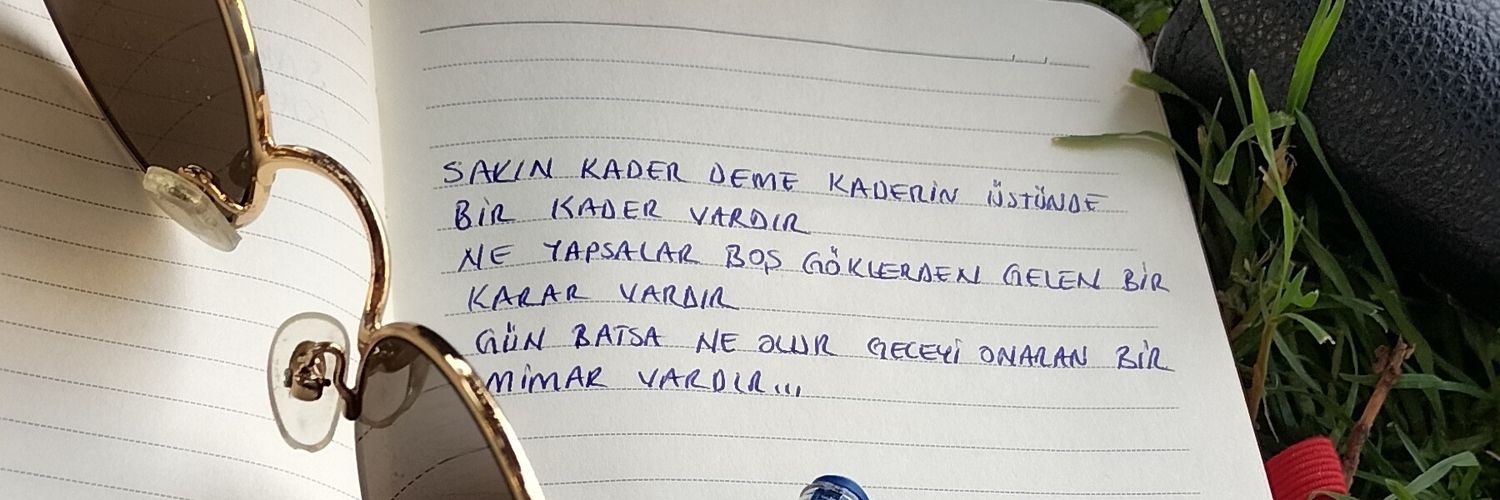 SAKIN KADER DEME KADERİN ÜSTÜNDE
BİR KADER VARDIR
NE YAPSALAR BOŞ GÖKLERDEN GELEN BİR
KARAR VARDIR
GÜN BATSA NE OLUR GECEYİ ONARAN BİR
MİMAR VARDIR...